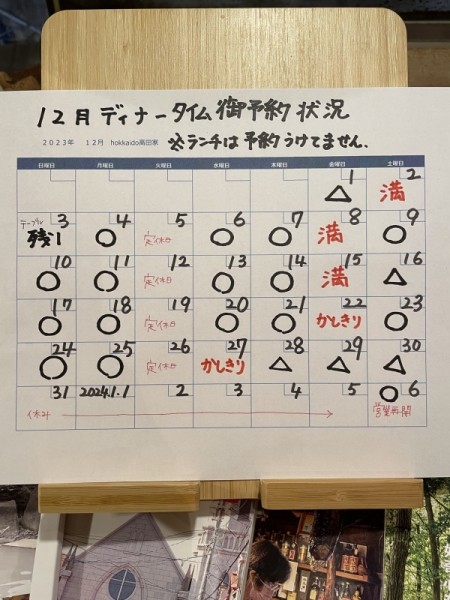 12月 ディナータイム 御予約 状況
2023年 12月 hokkaido高田家 ※ランチは 予約 うけてません。
日曜日 月曜日 火曜日 水曜日 木曜日 金曜日 土曜日
1 2
△ 満
テーブル 3 4 5 6 7 8 9
残1 ○ 定休日 ○ ○ 満 ○
10 11 12 13 14 15 16
○ ○ 定休日 ○ ○ 満 △
17 18 19 20 21 22 23
○ ○ 定休日 ○ ○ かしきり ○
24 25 26 27 28 29 30
○ ○ 定休日 かしきり △ △ △
31 2024.1.1 2 3 4 5 6
休み → ○ 営業再開